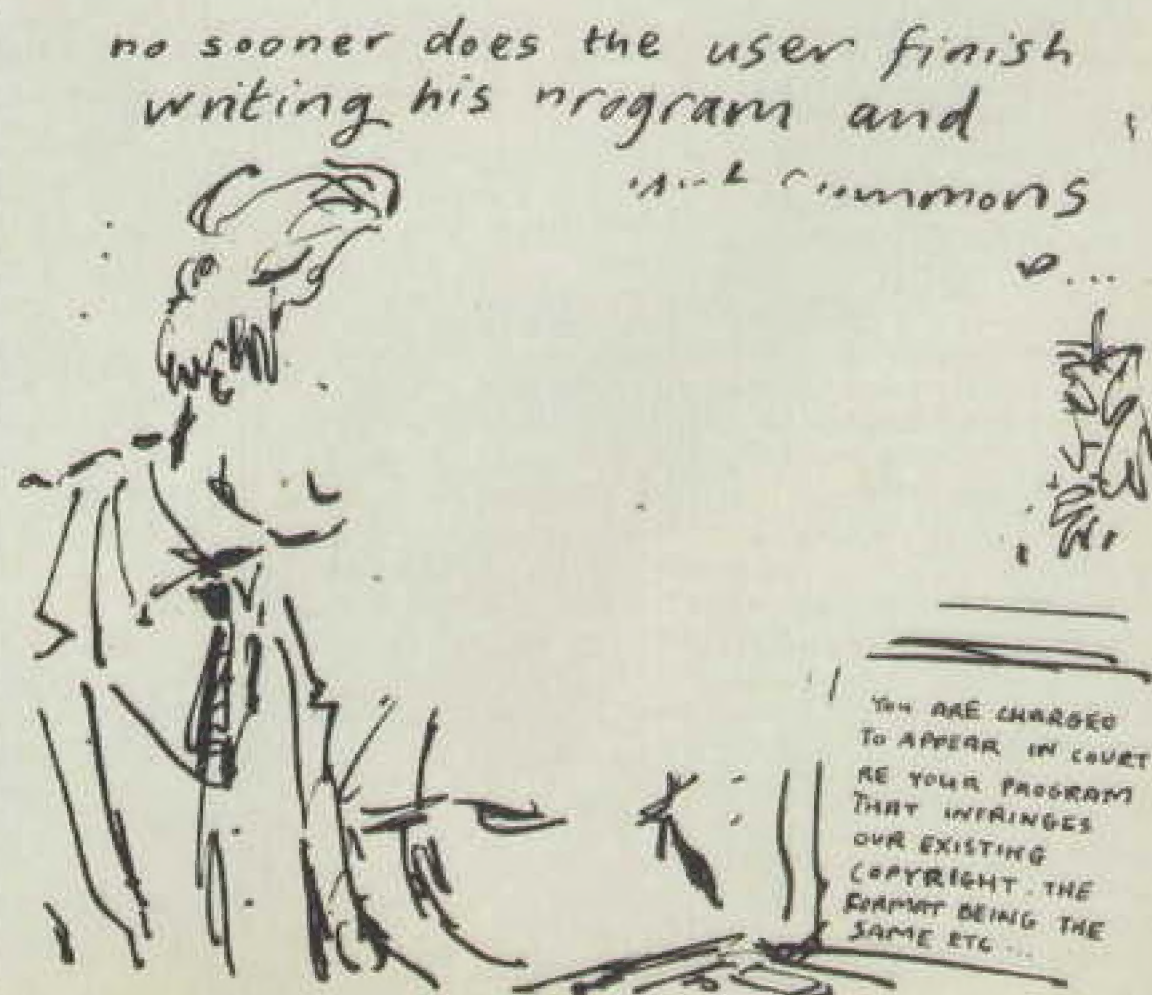 no sooner does the user finish
writing his program and
summons
...
YOU ARE CHARGED
TO APPEAR IN COURT
RE YOUR PROGRAM
THAT INFRINGES
OUR EXISTING
COPYRIGHT. THE
FORMAT BEING THE
SAME ETC ...